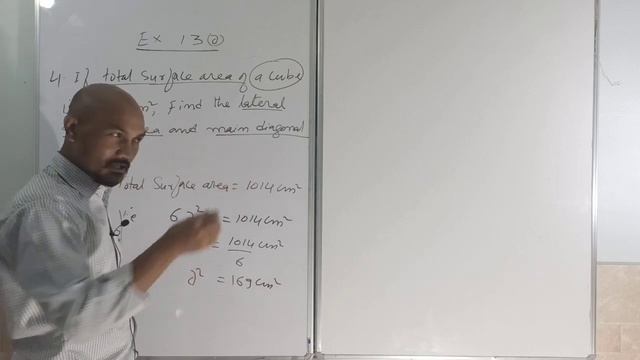 Ex 13(a)
4. If total surface area of a cube
cm², Find the lateral
area and main diagonal
total Surface area = 1014 cm²
i.e 6 a² = 1014 cm²
= 1014 cm²
6
a² = 169 cm²